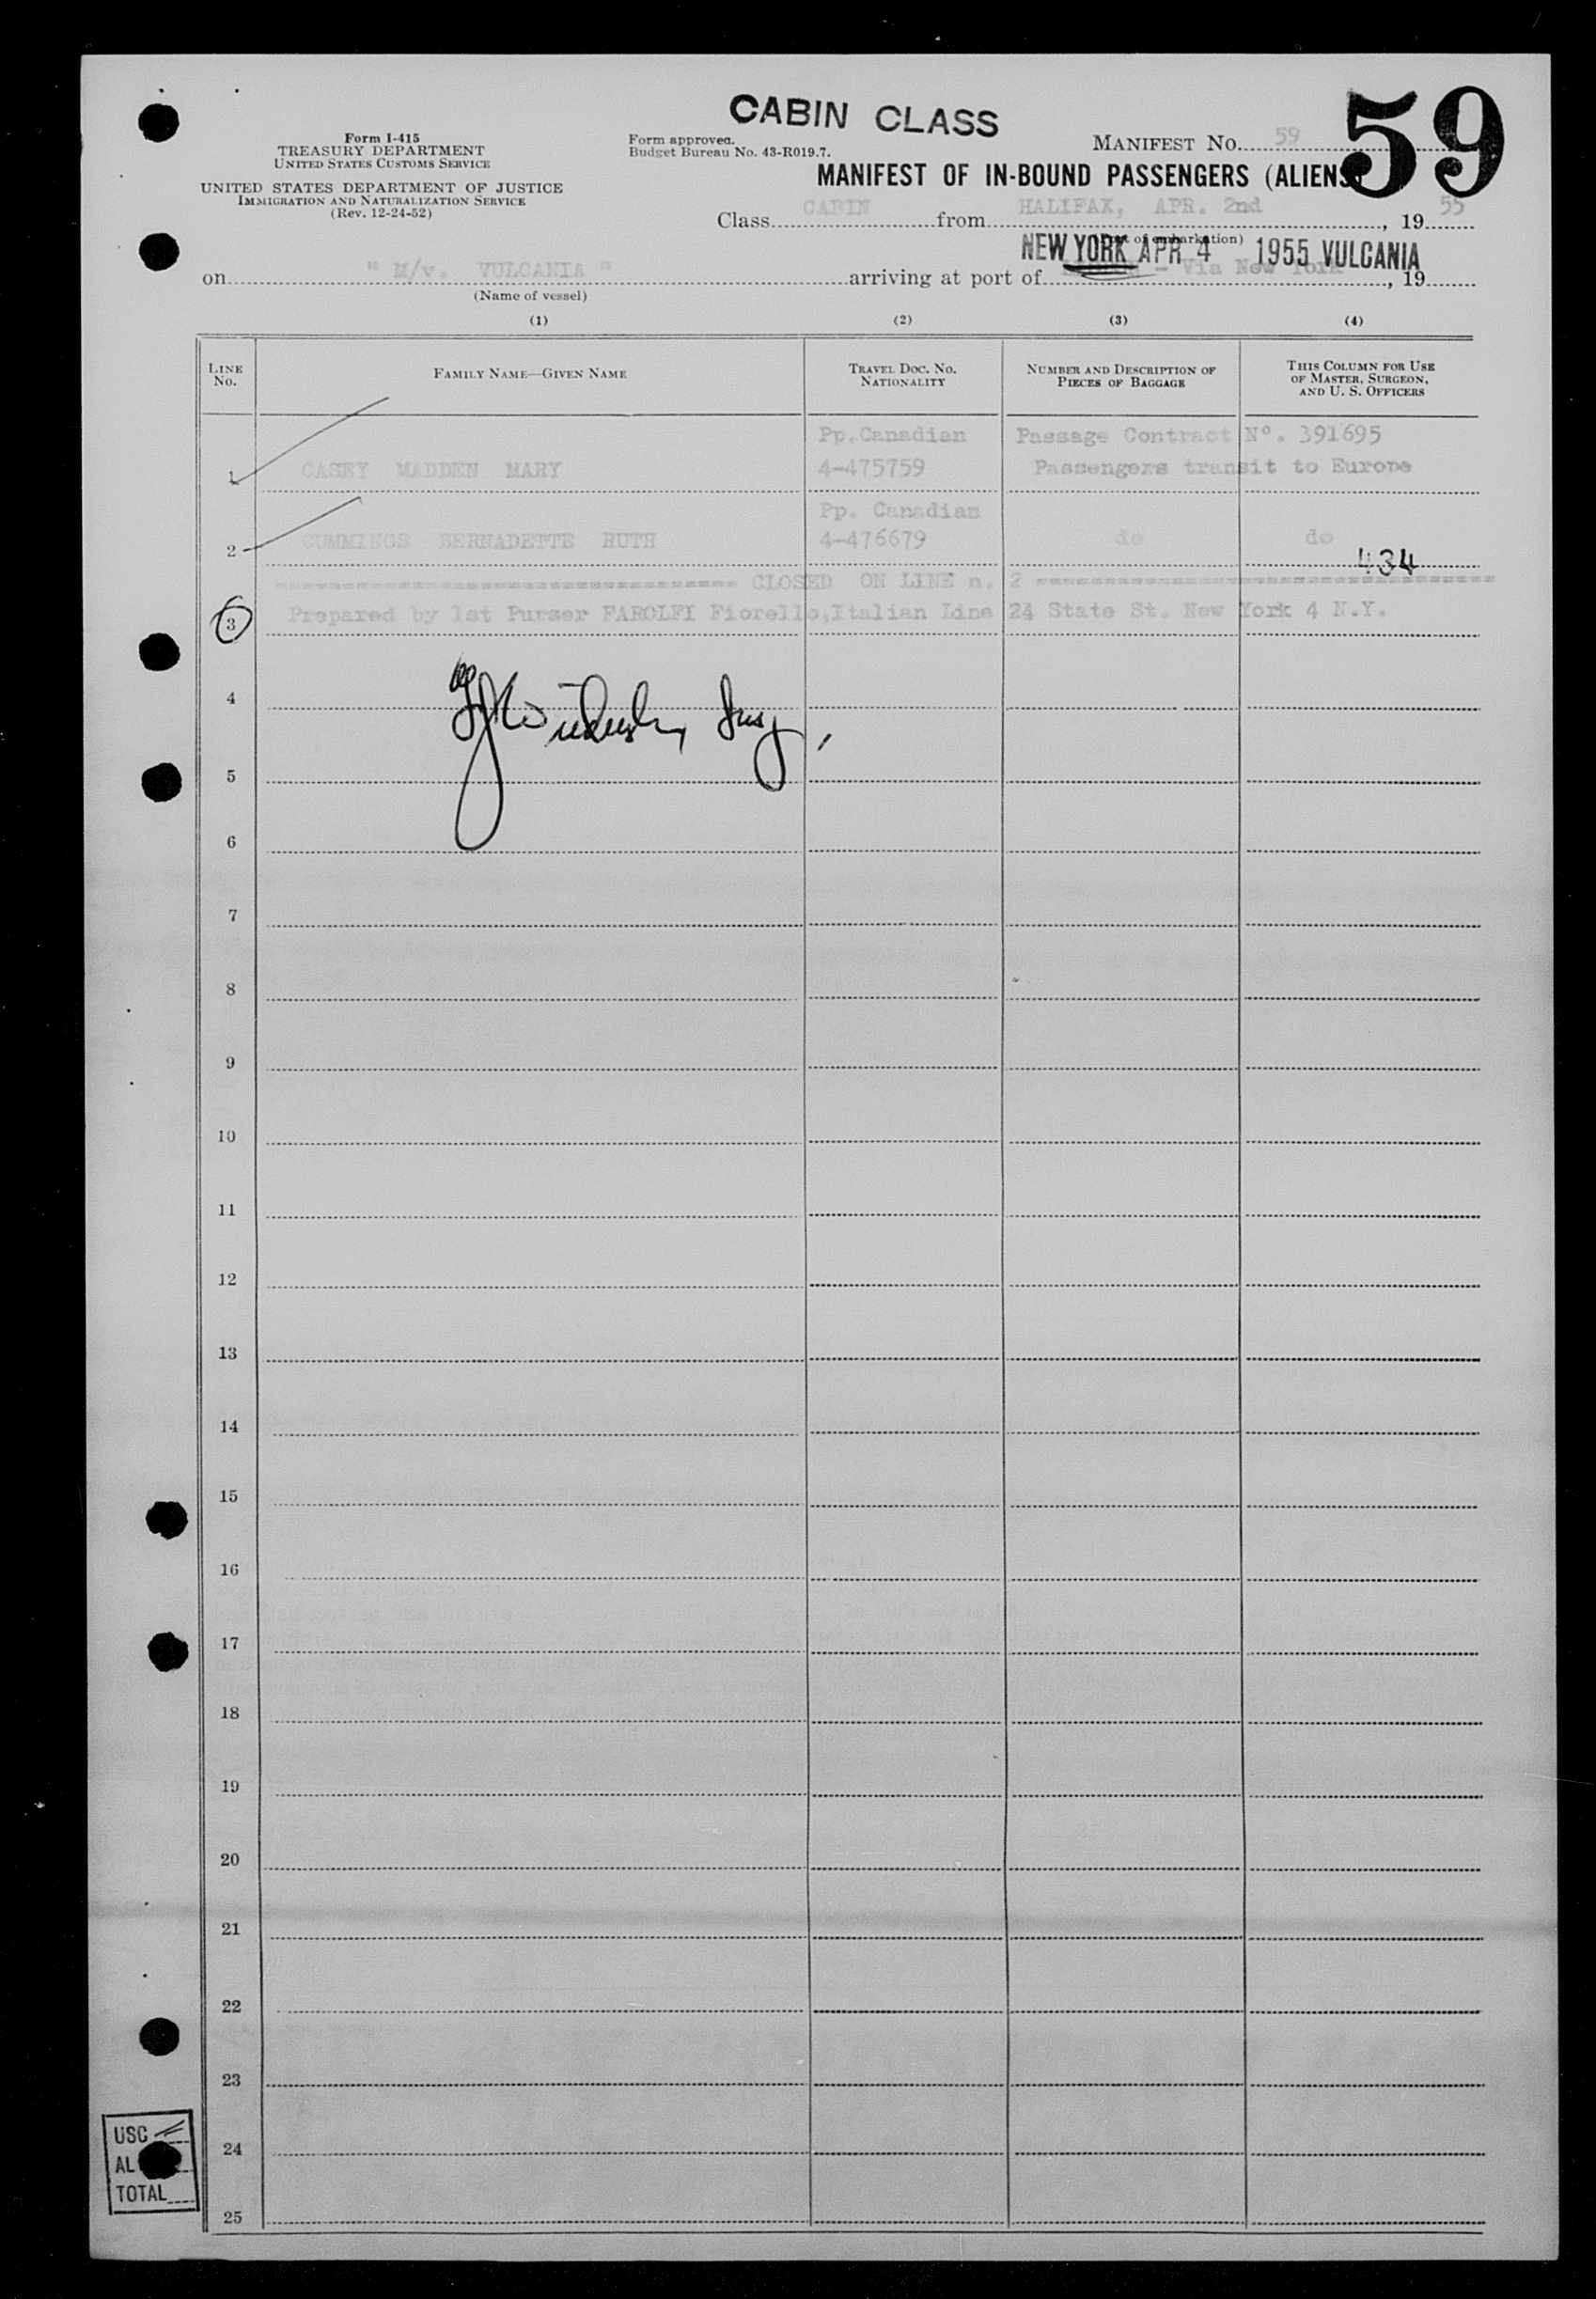 CABIN CLASS
59
Form I-415
TREASURY DEPARTMENT
UNITED STATES CUSTOMS SERVICE
UNITED STATES DEPARTMENT OF JUSTICE
IMMIGRATION AND NATURALIZATION SERVICE
(Rev. 12-24-52)
Form approved.
Budget Bureau No. 43-R019.7.
MANIFEST NO. 59
MANIFEST OF IN-BOUND PASSENGERS (ALIENS)
Class CABIN from HALIFAX, APR. 2nd, 19 55
NEW YORK APR 4 1955 VULCANIA
on " M/v. VULCANIA " arriving at port of - Via New York, 19
(Name of vessel)
(1) (2) (3) (4)
LINE NO.
FAMILY NAME—GIVEN NAME
TRAVEL DOC. NO. NATIONALITY
NUMBER AND DESCRIPTION OF PIECES OF BAGGAGE
THIS COLUMN FOR USE OF MASTER, SURGEON, AND U. S. OFFICERS
Pp.Canadian Passage Contract Nº. 391695
1 CASEY MADDEN MARY 4-475759 Passengers transit to Europe
Pp. Canadian
2 CUMMINGS BERNADETTE RUTH 4-476679 do do
434
CLOSED ON LINE n. 2
3 Prepared by 1st Purser FAROLFI Fiorello,Italian Line 24 State St. New York 4 N.Y.
4
5
6
7
8
9
10
11
12
13
14
15
16
17
18
19
20
21
22
23
24
25
USC
AL
TOTAL